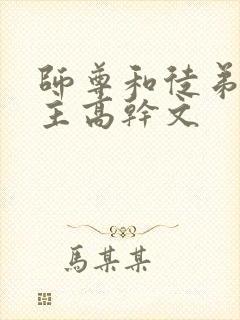 師尊和徒弟
主高幹文
馬某某